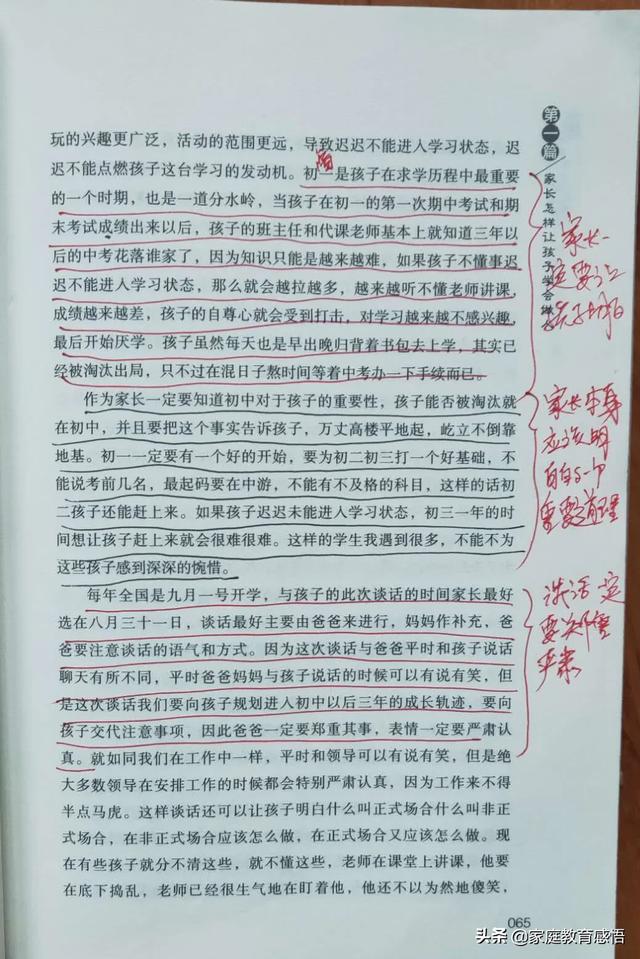 玩的兴趣更广泛，活动的范围更远，导致迟迟不能进入学习状态，迟
迟不能点燃孩子这台学习的发动机。初一是孩子在求学历程中最重要
的一个时期，也是一道分水岭，当孩子在初一的第一次期中考试和期
末考试成绩出来以后，孩子的班主任和代课老师基本上就知道三年以
后的中考花落谁家了，因为知识只能是越来越难，如果孩子不懂事迟
迟不能进入学习状态，那么就会越拉越多，越来越听不懂老师讲课，
成绩越来越差，孩子的自尊心就会受到打击，对学习越来越不感兴趣，
最后开始厌学。孩子虽然每天也是早出晚归背着书包去上学，其实已
经被淘汰出局，只不过在混日子熬时间等着中考办一下手续而已。
作为家长一定要知道初中对于孩子的重要性，孩子能否被淘汰就
在初中，并且要把这个事实告诉孩子，万丈高楼平地起，屹立不倒靠
地基。初一一定要有一个好的开始，要为初二初三打一个好基础，不
能说考前几名，最起码要在中游，不能有不及格的科目，这样的话初
二孩子还能赶上来。如果孩子迟迟未能进入学习状态，初三一年的时
间想让孩子赶上来就会很难很难。这样的学生我遇到很多，不能不为
这些孩子感到深深的惋惜。
每年全国是九月一号开学，与孩子的此次谈话的时间家长最好
选在八月三十一日，谈话最好主要由爸爸来进行，妈妈作补充，爸
爸要注意谈话的语气和方式。因为这次谈话与爸爸平时和孩子说话
聊天有所不同，平时爸爸妈妈与孩子说话的时候可以有说有笑，但
是这次谈话我们要向孩子规划进入初中以后三年的成长轨迹，要向
孩子交代注意事项，因此爸爸一定要郑重其事，表情一定要严肃认
真。就如同我们在工作中一样，平时和领导可以有说有笑，但是绝
大多数领导在安排工作的时候都会特别严肃认真，因为工作来不得
半点马虎。这样谈话还可以让孩子明白什么叫正式场合什么叫非正
式场合，在非正式场合应该怎么做，在正式场合又应该怎么做。现
在有些孩子就分不清这些，就不懂这些，老师在课堂上讲课，他要
在底下捣乱，老师已经很生气地在盯着他，他还不以为然地傻笑，
第一篇
家长怎样让孩子学会
家长一
定要让
孩子明白
家长本身
应该明
白的一个
重要道理
谈话一定
要郑重
严肃
065
头条 @家庭教育感悟